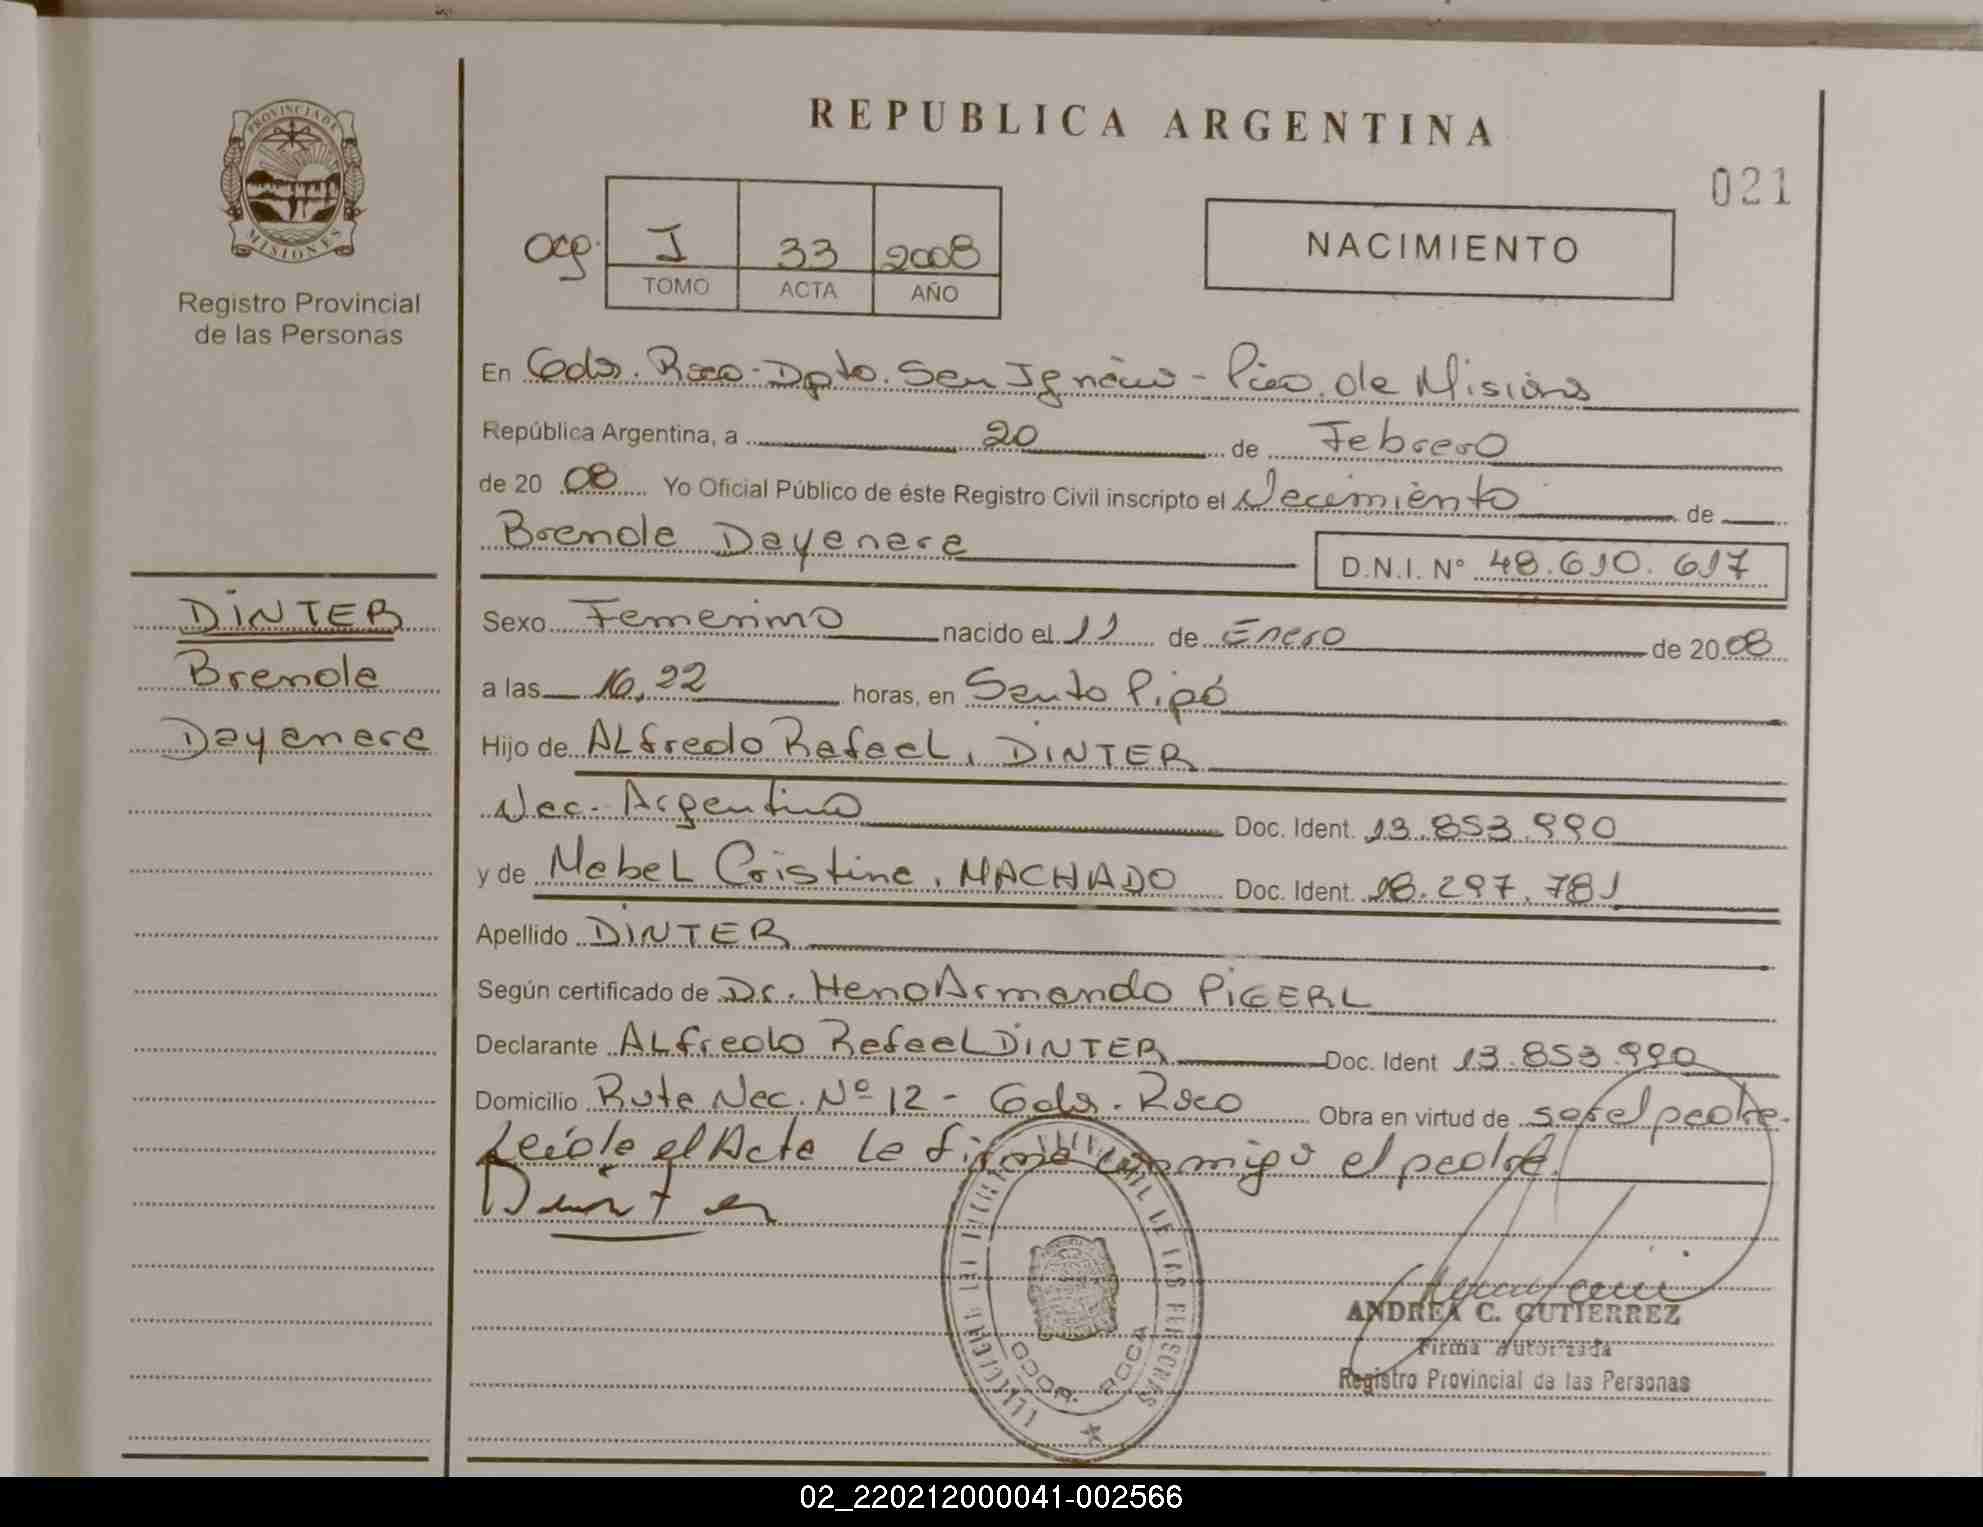 REPUBLICA ARGENTINA
021
PROVINCIA DE
MISIONES
Registro Provincial
de las Personas
ocg. I 33 2008
TOMO ACTA AÑO
NACIMIENTO
En Gdor. Roca - Dpto. San Ignacio - Pcia. de Misiones
República Argentina, a 20 de Febrero
de 20 08 Yo Oficial Público de éste Registro Civil inscripto el Nacimiento de
Brenda Dayanara D.N.I. Nº 48.610.617
DINTER
Brenda
Dayanara
Sexo Femenino nacido el 11 de Enero de 20 08
a las 16,22 horas, en Santo Pipó
Hijo de ALfredo RafaeL, DINTER
Nac. Argentino Doc. Ident. 13.853.990
y de MabeL Cristina, MACHADO Doc. Ident. 18.297.781
Apellido DINTER
Según certificado de Dr. Heno Armando PIGERL
Declarante ALfredo RafaeL DINTER Doc. Ident 13.853.990
Domicilio Ruta Nac. Nº 12 - Gdor. Roca Obra en virtud de ser el padre.
Leída el Acta La firma conmigo el padre.
Dinter
DE LAS PERSONAS
GDOR. ROCA
ANDREA C. GUTIERREZ
Firma Autorizada
Registro Provincial de las Personas
02_220212000041-002566